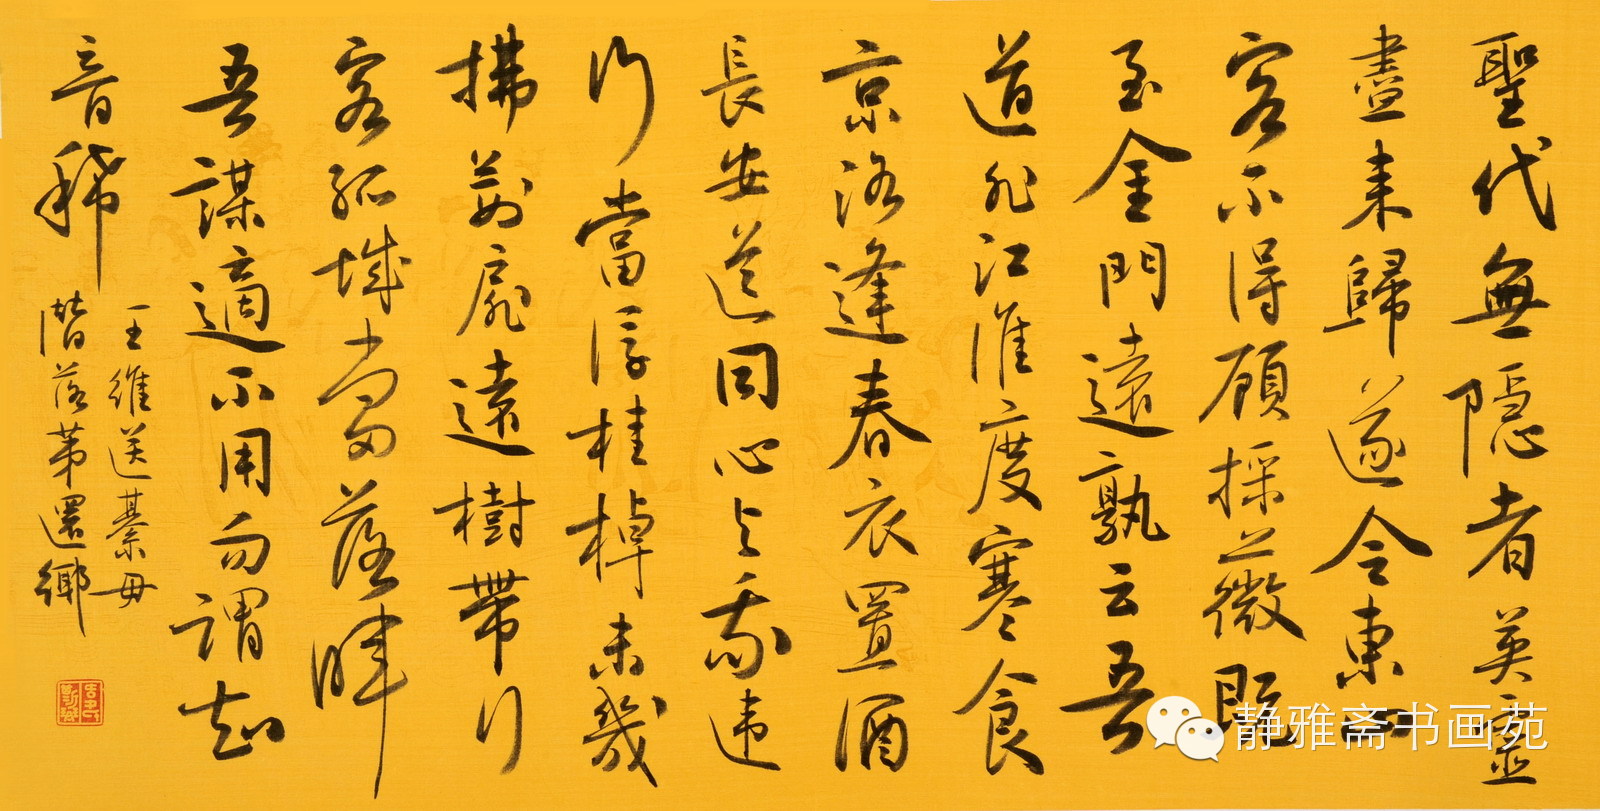 聖代無隐者英靈
盡来歸遂令東山
客不得顧採薇既
至金門遠孰云吾
道非江淮度寒食
京洛逢春衣置酒
長安道同心与我違
行當浮桂棹未幾
拂荆扉遠樹帶行
客孤城當落暉
吾謀適不用勿謂知
音稀
王維送綦毋
潛落第還鄉
静雅斋书画苑